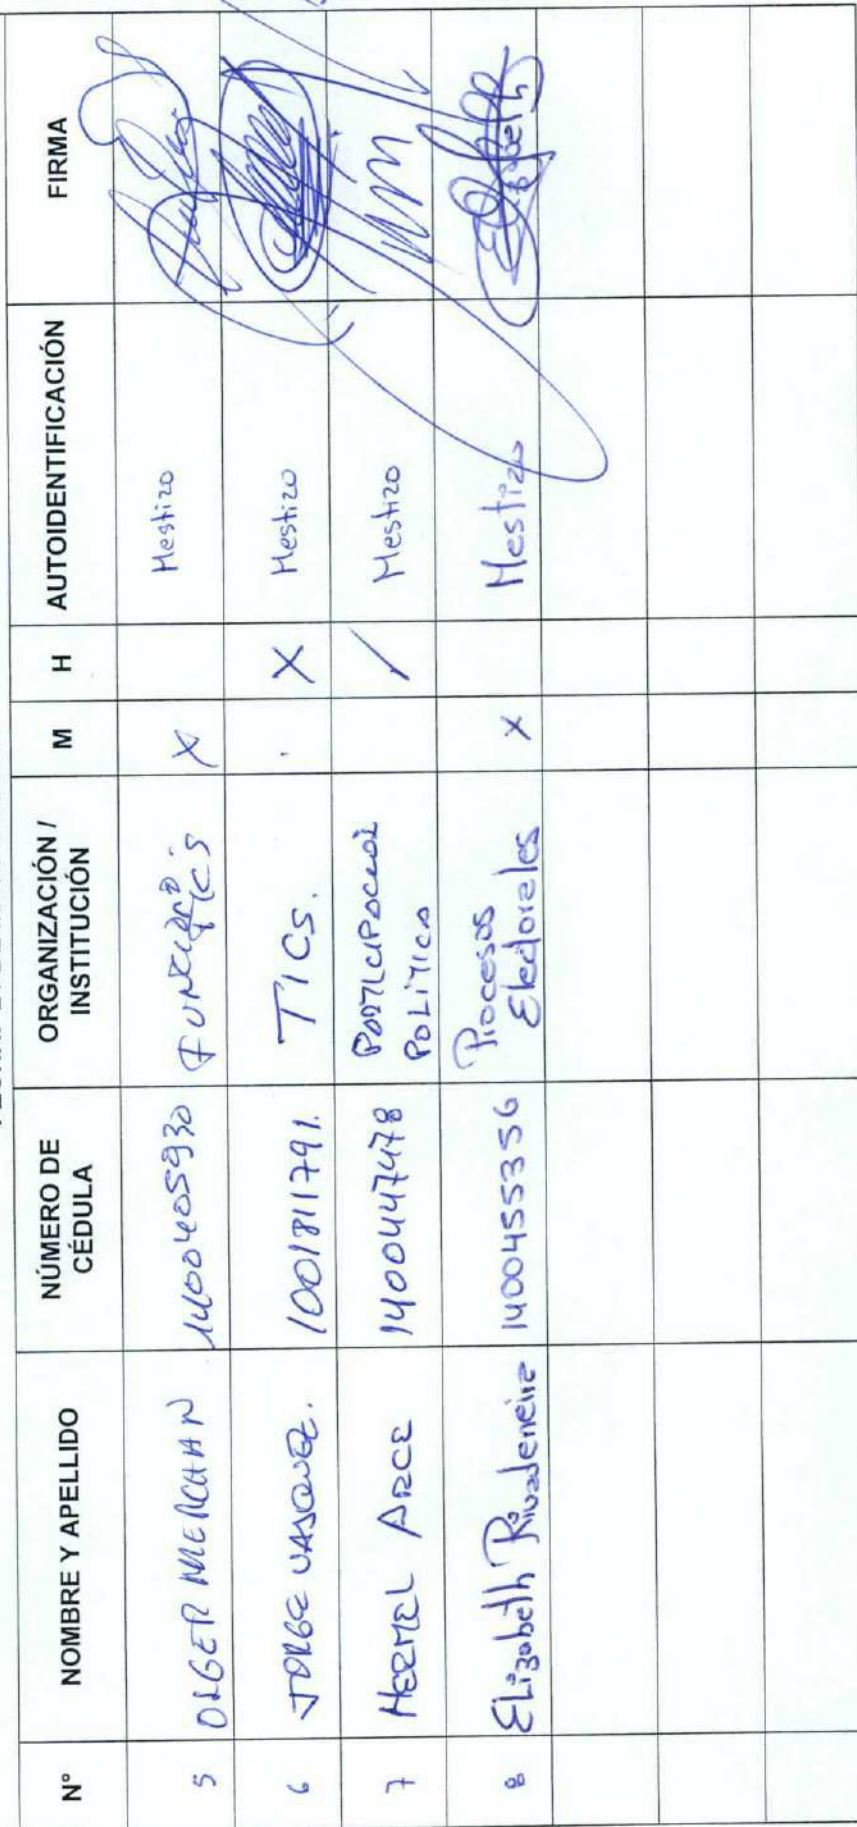 N° NOMBRE Y APELLIDO NÚMERO DE CÉDULA ORGANIZACIÓN / INSTITUCIÓN M H AUTOIDENTIFICACIÓN FIRMA
5 OLGER MERCHAN 1400405930 X Mestizo
6 JORGE VASQUEZ. 1001811791. TICS. X Mestizo
7 HERMEL ARCE 1400447478 POLITICA / Mestizo
8 Elizabeth Rivadeneira 1400455356 Procesos Electorales X Mestizo Elizabeth